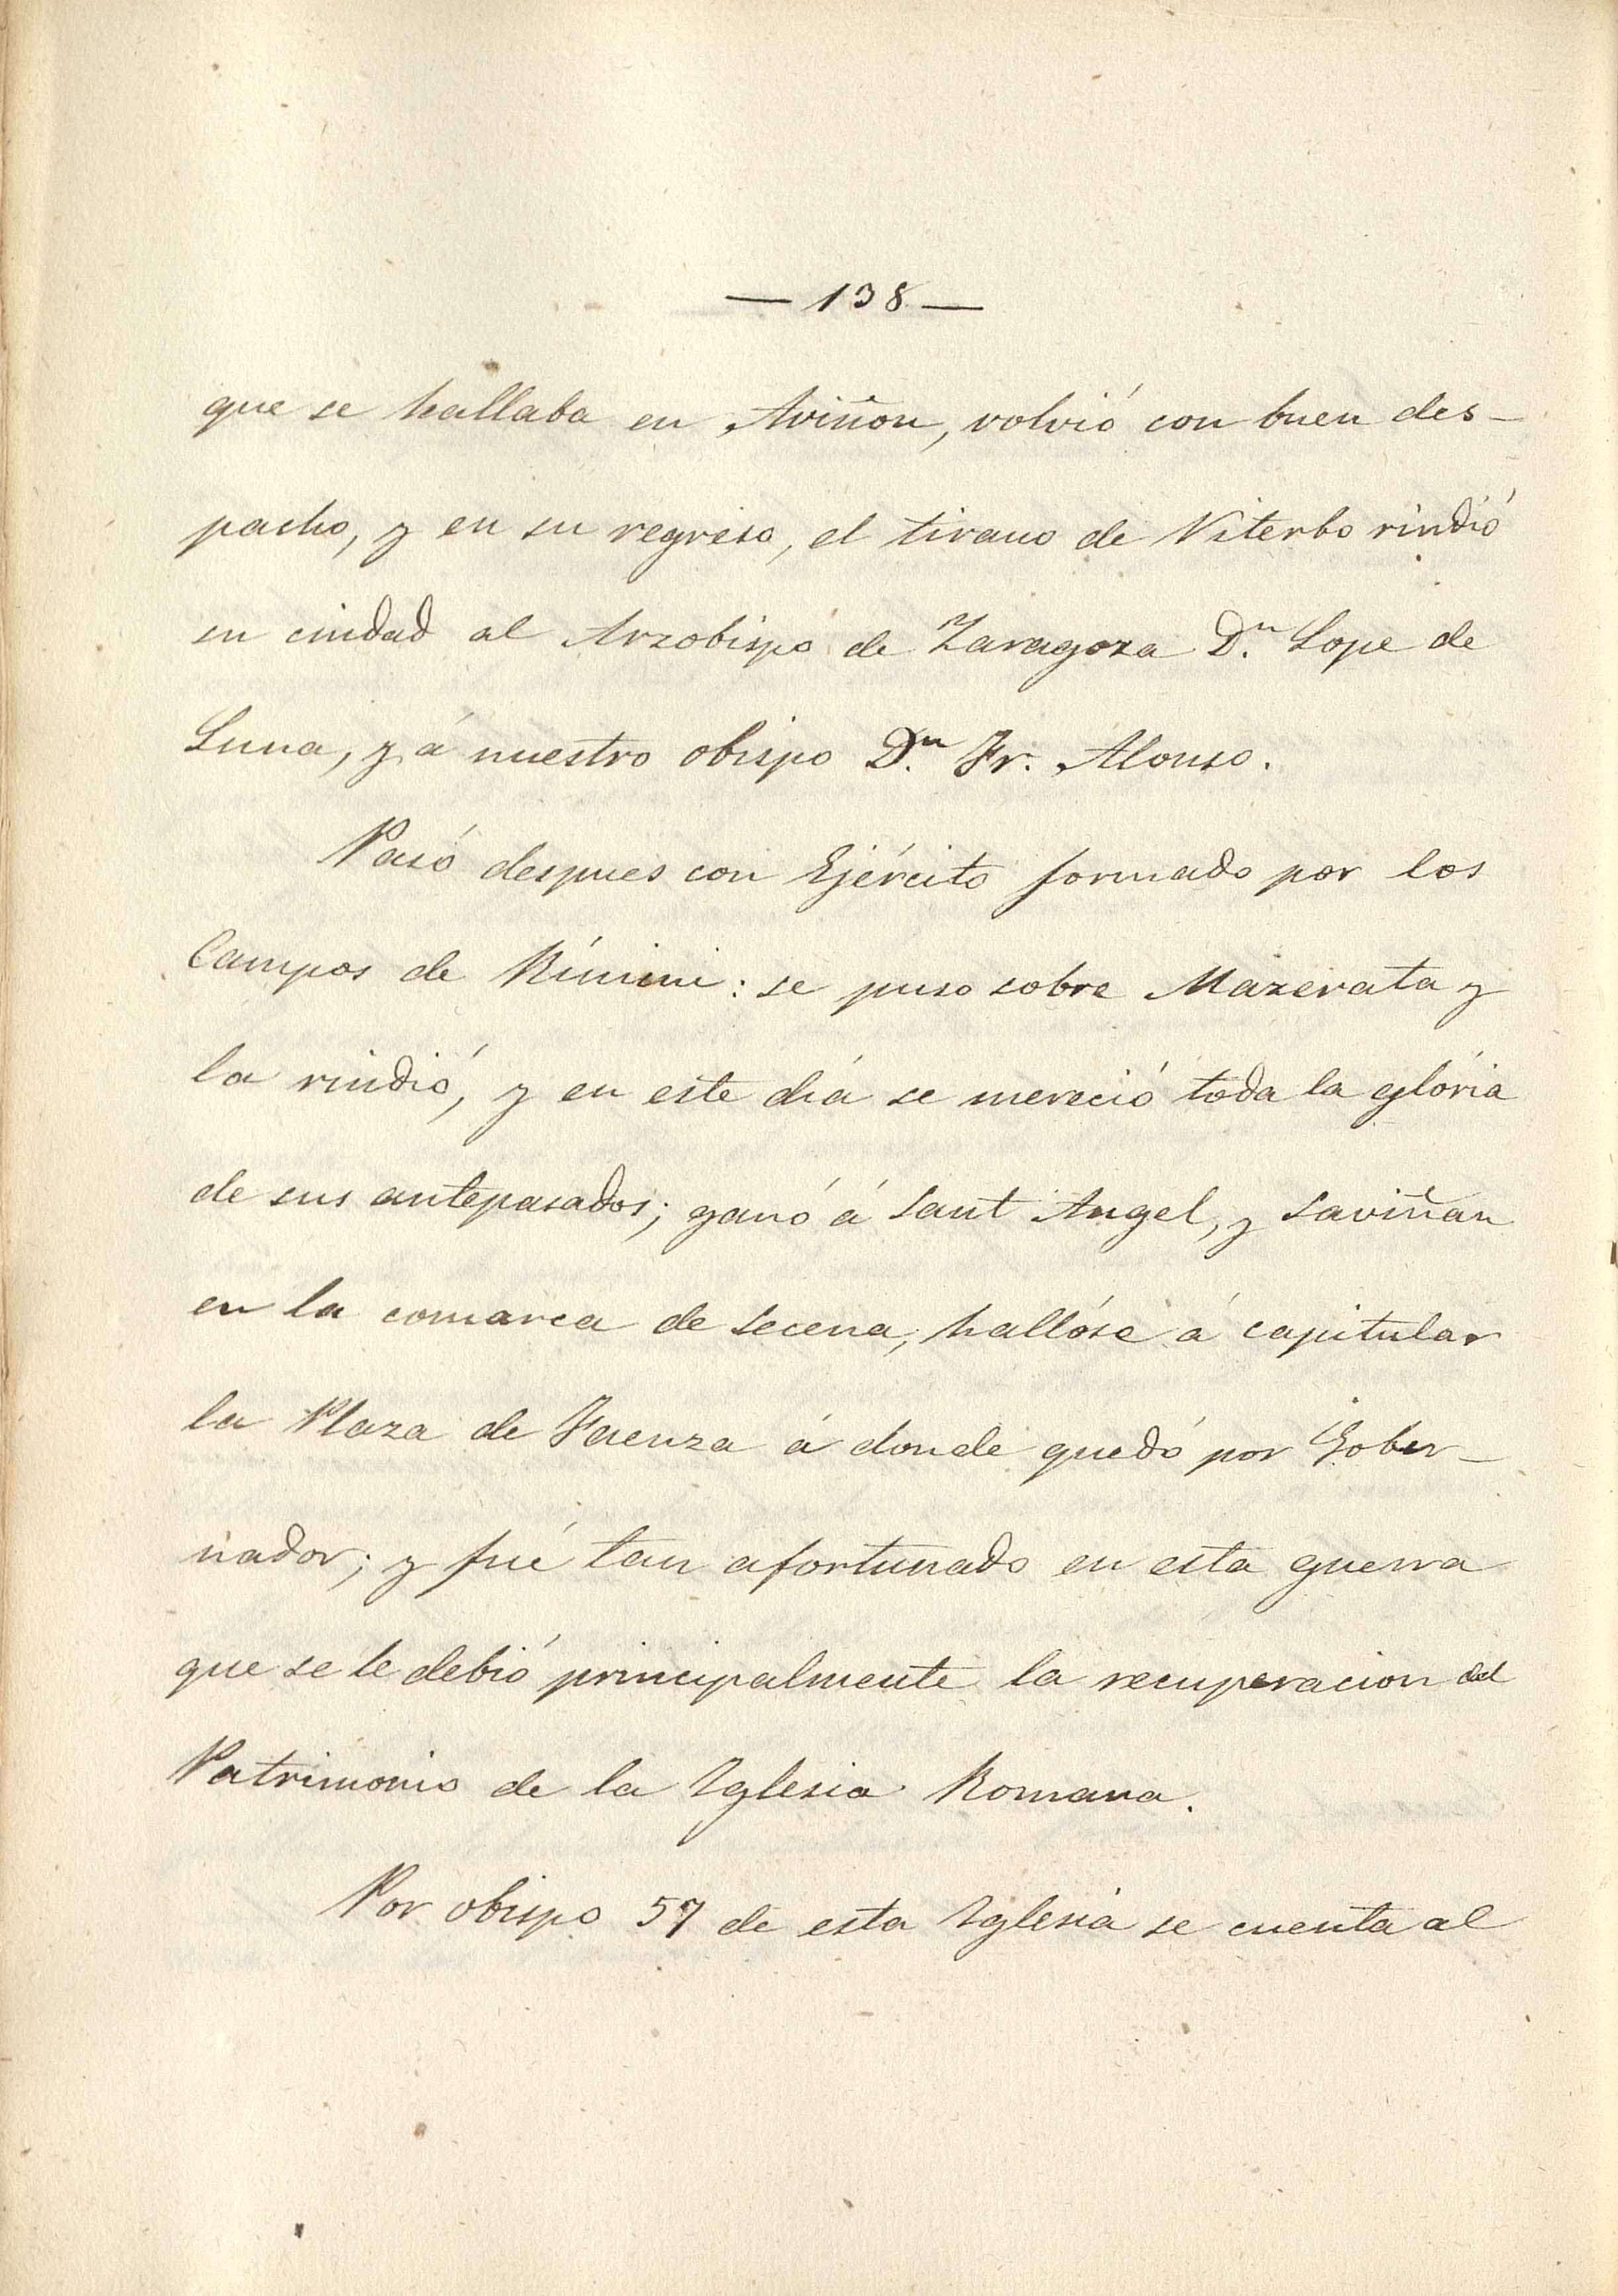 — 138 —
que se hallaba en Aviñon, volvió con buen des-
pacho, y en su regreso, el tirano de Viterbo rindió
su ciudad al Arzobispo de Zaragoza D.n Lope de
Luna, y á nuestro obispo D.n Fr. Alonso.
Pasó despues con Ejército formado por los
Campos de Rímini: se puso sobre Mazerata y
la rindió, y en este dia se mereció toda la glória
de sus antepasados; ganó á Sant Angel, y Saviñan
en la comarca de Secena; hallóse á capitular
la Plaza de Faenza á donde quedó por Gober-
nador; y fué tan afortunado en esta guerra
que se le debió principalmente la recuperacion del
Patrimonio de la Iglesia Romana.
Por obispo 57 de esta Iglesia se cuenta al